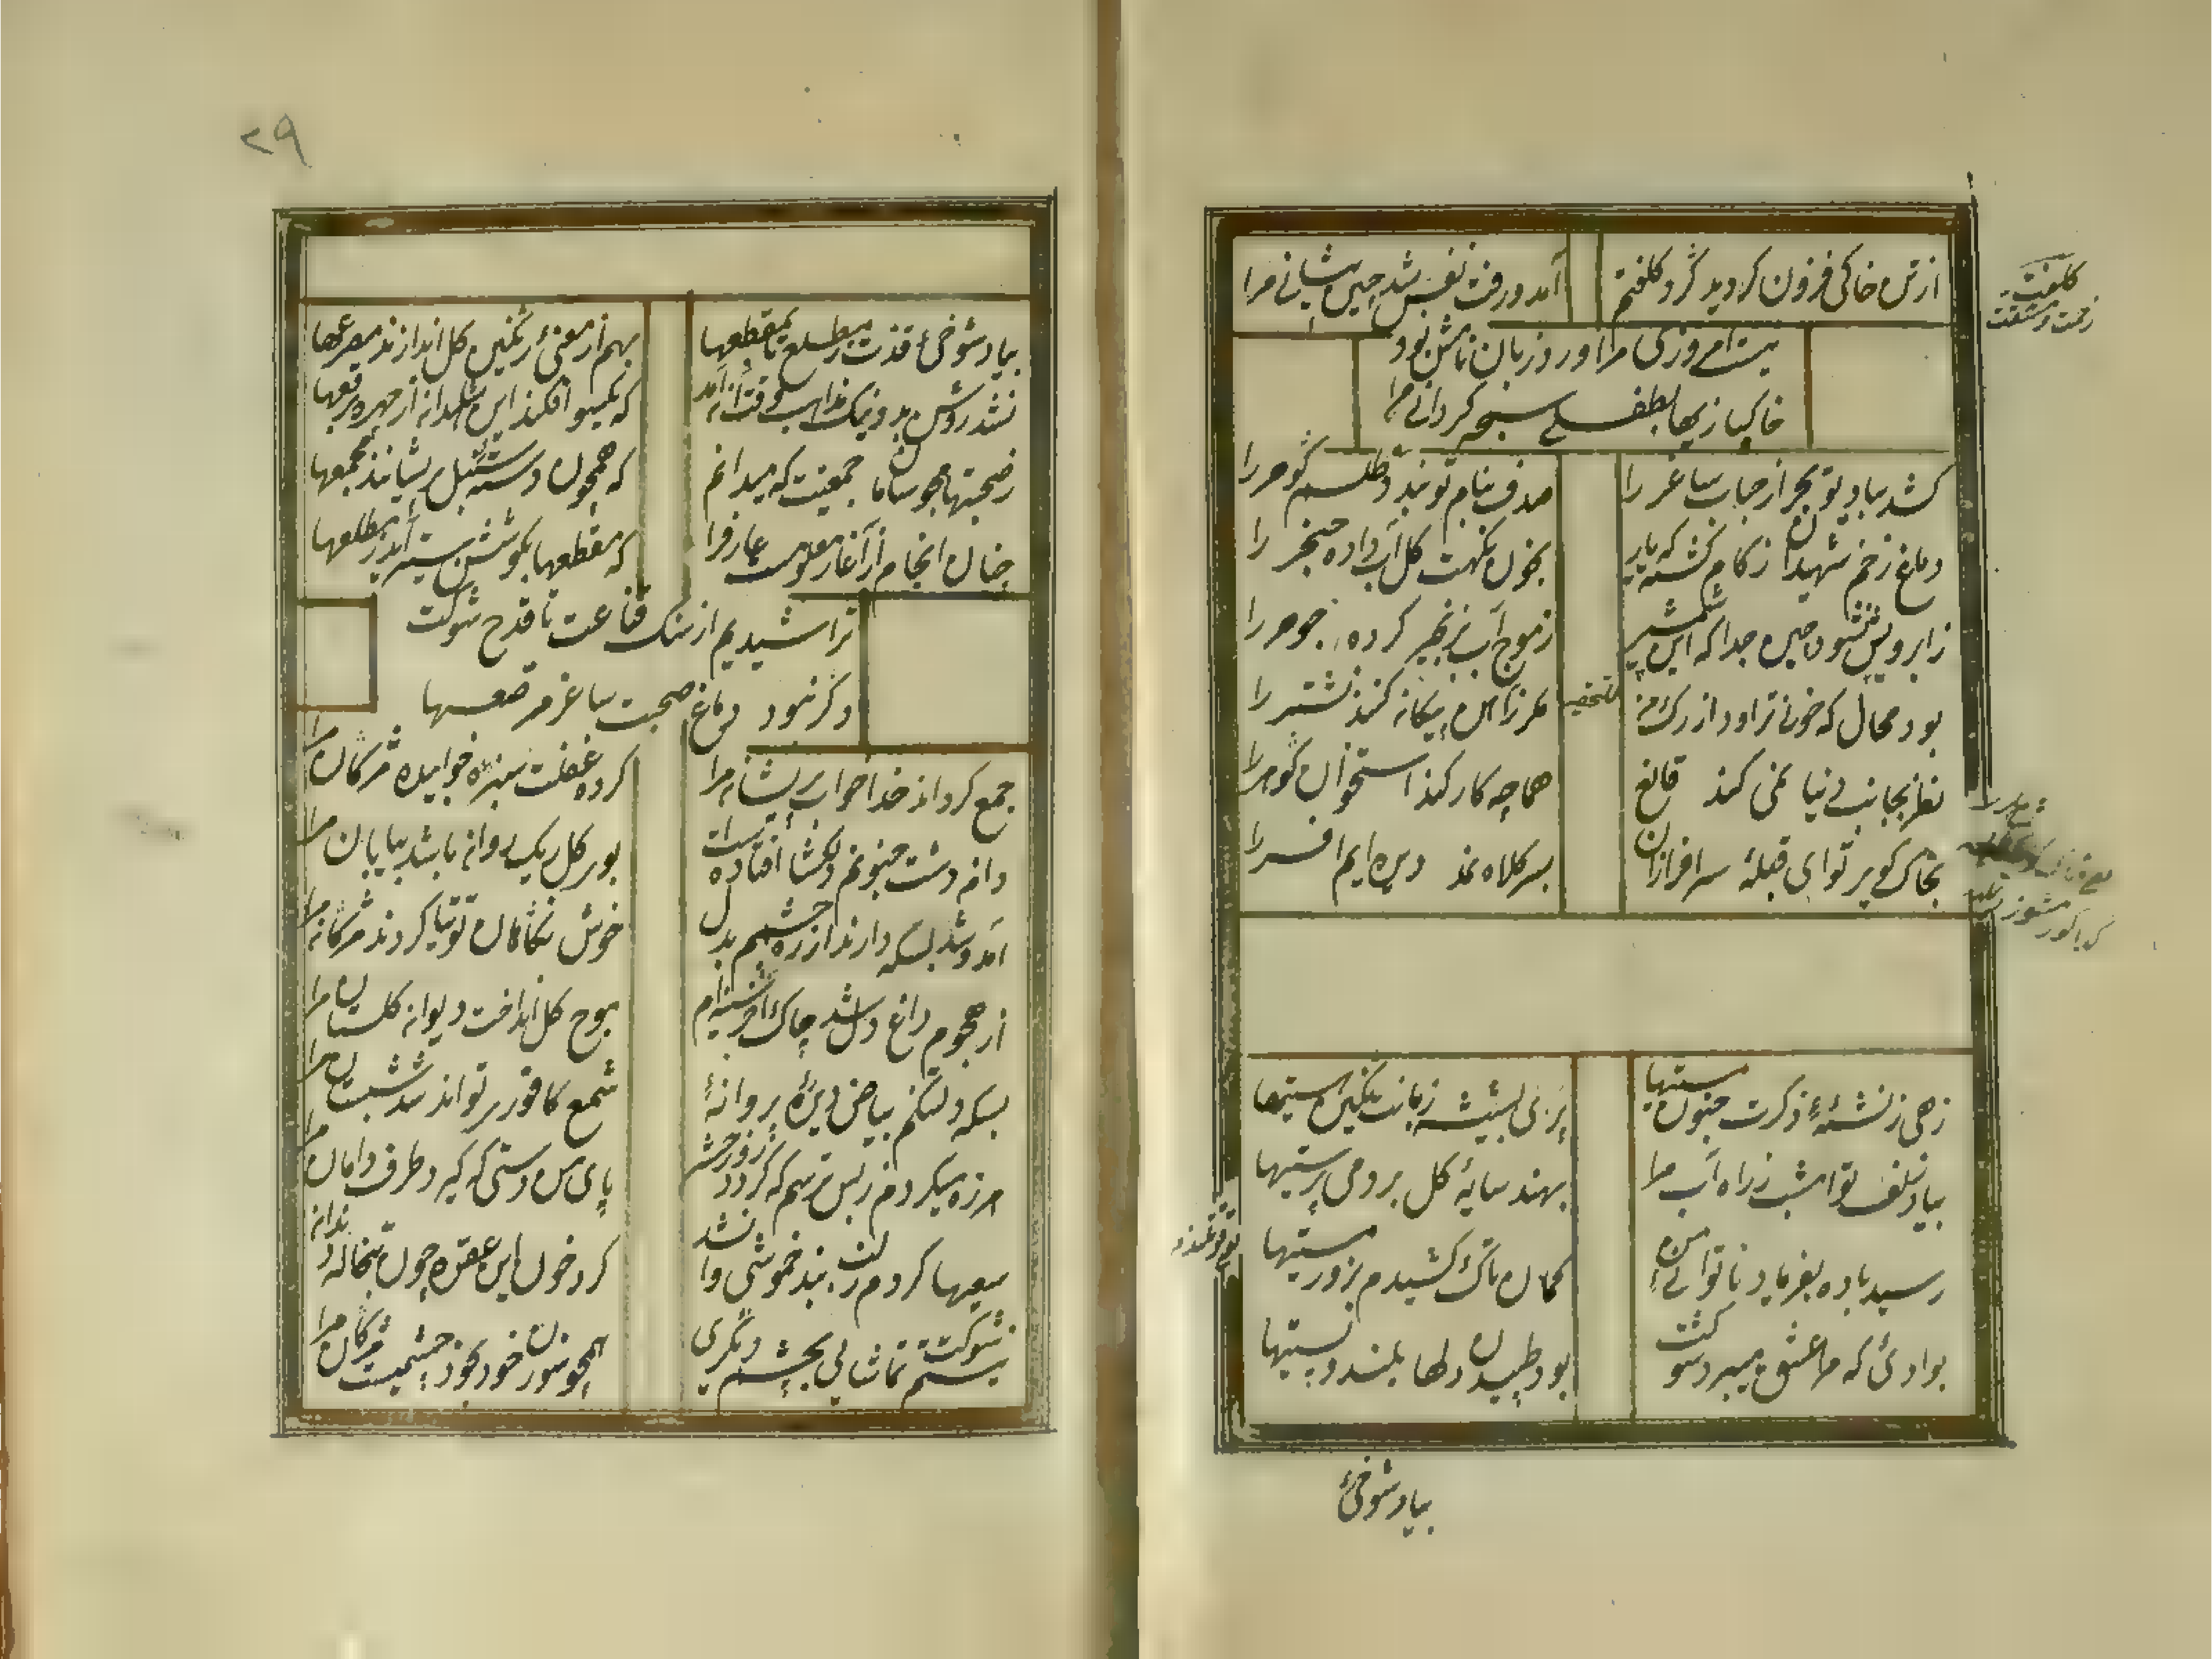 از تن خاکی فزون کردید کرد کلفتم
آمد و رفت نفس شد چین پیشانی مرا
کلفت زحمت و مشقت
نیست امروزی مرا ورد زبان نامش بود
خاکبازیها بطفلی سبحه کردانی مرا
کشد بیاد تو بحر از حباب ساغر را
صدف بنام تو بندد طلسم کوهر را
دماغ زخم شهیدان زکام کشته که یار
بخون نکهت کل آب داده خنجر را
ز ابرویش نشود چین جدا که این شمشیر
ز موج آب بزنجیر کرده جوهر را
بود محال که خون تراود از رک من
مکر ز آهن پیکان کنند نشتر را
نظر بجانب دنیا نمی کند قانع
هما چه کار کند استخوان کوهر را
بخاک کوی تو ای قبلهٔ سرافرازان
بسر کلاه نمد دیده ایم افسر را
زهی ز نشئهٔ ذکرت جنون مستیها
پری بشیشه ز یادت نکین پرستیها
بیاد زلف تو امشب ز راه آب مرا
بهند سایهٔ کل برد می پرستیها
رسید باده بفریاد ناتوانی من
کمان تاک کشیدم بزور مستیها
بوادئ که مرا عشق میبرد شوکت
بود طپیدن دلها بلند و پستیها
بیاد شوخئ
۲۹
بیاد شوخئ قدت ز مطلع تا بمقطعها
بهم از معنئ رنکین کل اندازند مصرعها
که یکسو افکند این شاهدان از چهره برقعها
ز صحبتها مجو سامان جمعیت که میدانم
که همچون دستهٔ سنبل پریشانند مجمعها
چنان انجام از آغاز معلومست عارف را
که مقطعها بکوشش پیشتر آید ز مطلعها
تراشیدیم از سنک قناعت تا قدح شوکت
دکر نبود دماغ صحبت ساغر مرصعها
جمع کرداند خدا خواب پریشان مرا
کرده غفلت سبزهٔ خوابیده مژکان مرا
دامن دشت جنونم دلکشا افتاده است
بوی کل ریک روان باشد بیابان مرا
آمد و شد بسکه دارند از ره چشمم بدل
خوش نکاهان توتیا کردند مژکان مرا
از هجوم داغ دل شد چاک آخر سینه ام
موج کل انداخت دیوار کلستان مرا
بسکه دلتنکم بیاض دیدهٔ پروانهٔ
شمع کافور تواند شد شبستان مرا
هرزه میکردم ز بس ترسم که کردد روز حشر
پای من دستی که کیرد طرف دامان مرا
سعیها کردم ز لب بند خموشی وا نشد
کرد خون این عقده چون تبخاله دندان مرا
نیستم شوکت تماشائی بچشم دیکری
همچو سوزن خود بخود چشمیست مژکان مرا